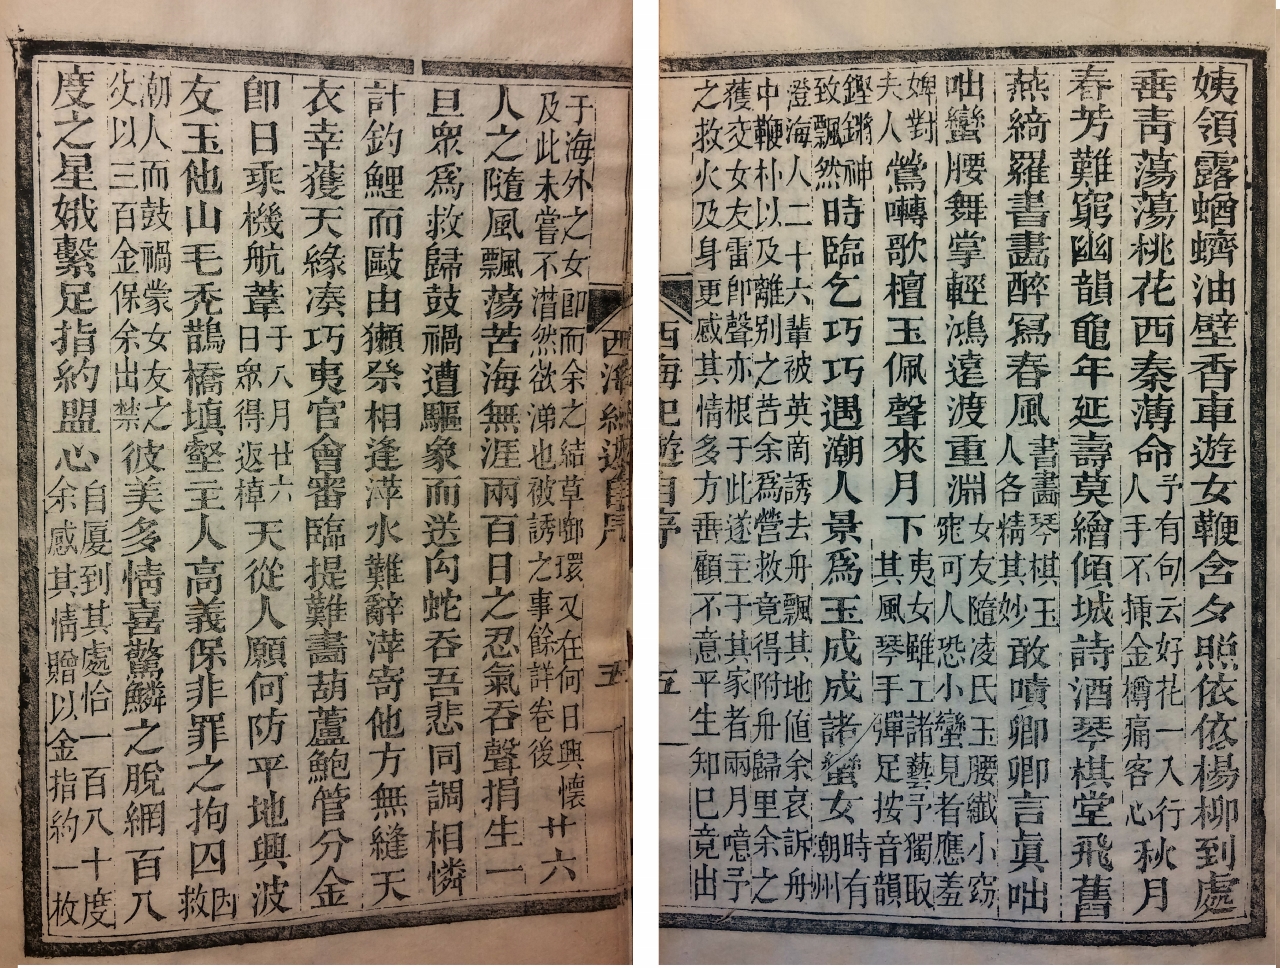 姨領露蝤蠐油壁香車遊女鞭含夕照依依楊柳到處
垂靑蕩蕩桃花西秦薄命予有句云好花一入行人手不揷金樽痛客心秋月
春芳難窮幽韻龜年延壽莫繪傾城詩酒琴棋堂飛舊
燕綺羅書畵醉冩春風書畵琴棋玉人各精其妙敢嘖卿卿言眞咄
咄蠻腰舞掌輕鴻遠渡重淵女友隨凌氏玉腰纖小窈窕可人恐小蠻見者應羞
婢對夫人鶯囀歌檀玉佩聲來月下夷女雖工諸藝予獨取其風琴手彈足按音韻
鏗鏘神致飄然時臨乞巧巧遇潮人景爲玉成成諸蠻女時有潮州
澄海人二十六輩被英商誘去舟飄其地値余哀訴舟中鞭朴以及離別之苦余爲營救竟得附舟歸里余之
獲交女友雷卽聲亦根于此遂主于其家者兩月噫予之救火及身更感其情多方垂顧不意平生知巳竟出
西海紀遊自序
五
西海紀遊自序
五
于海外之女卽而余之結草啣環又在何日興懷及此未嘗不潸然欲涕也被誘之事餘詳卷後廿六
人之隨風飄蕩苦海無涯兩百日之忍氣吞聲捐生一
旦衆爲救歸鼓禍遭驅象而送內蛇吞吾悲同調相憐
計釣鯉而敺由獺祭相逢萍水難辭萍寄他方無縫天
衣幸獲天緣湊巧夷官會審臨提難畵葫蘆鮑管分金
卽日乘機航葦于八月廿六日衆得返棹天從人願何防平地興波
友玉他山毛禿鵲橋塡壑主人高義保非罪之拘囚因救
潮人而鼓禍蒙女友之父以三百金保余出禁彼美多情喜驚鱗之脫網百八
度之星娥繫足指約盟心自厦到其處恰一百八十度余感其情贈以金指約一枚